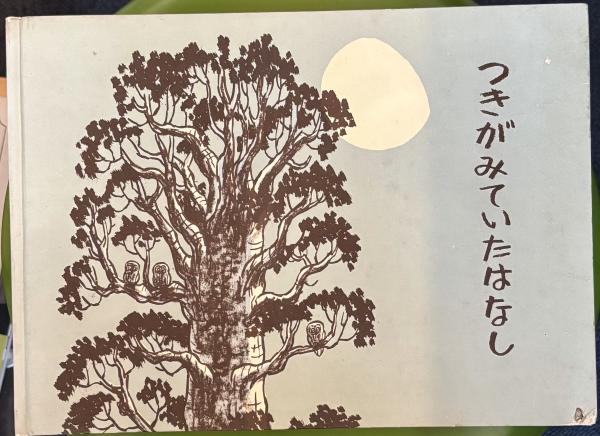 つきがみていたはなし